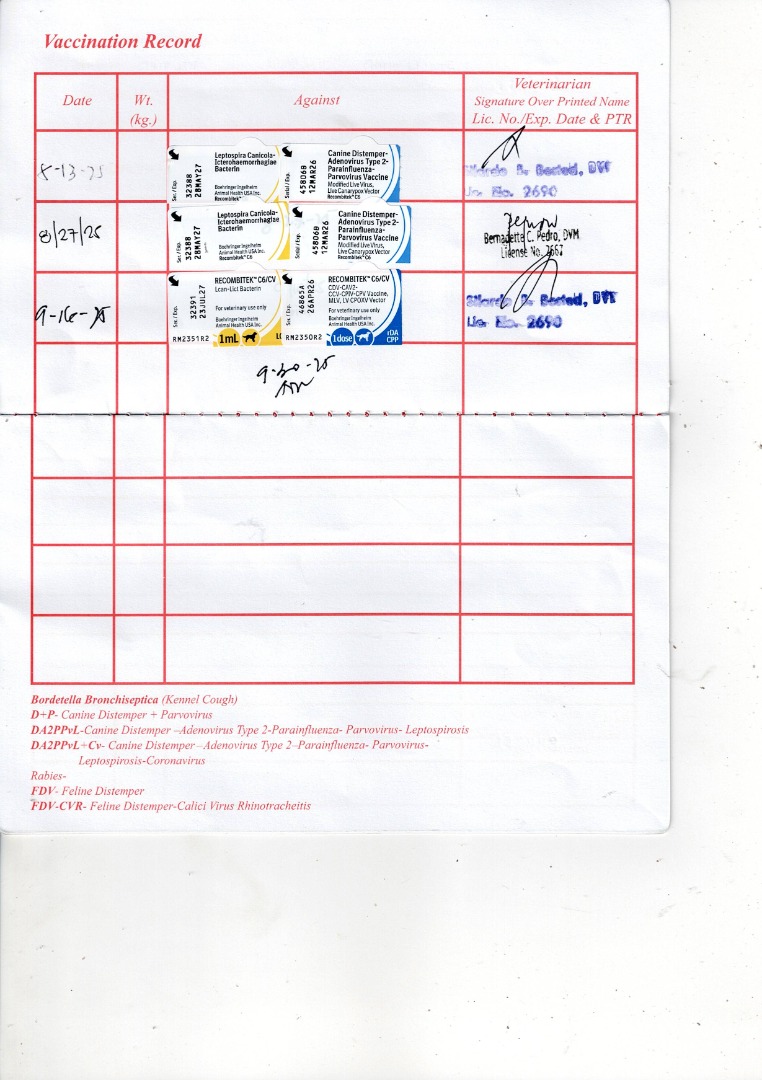 Vaccination Record
Date
Wt.
(kg.)
Against
Veterinarian
Signature Over Printed Name
Lic. No./Exp. Date & PTR
8-13-25
Ser./Exp.
32388
28MAY27
Leptospira Canicola-
Icterohaemorrhagiae
Bacterin
Boehringer Ingelheim
Animal Health USA Inc.
Recombitek® C6
Serial / Exp.
45806B
12MAR26
Canine Distemper-
Adenovirus Type 2-
Parainfluenza-
Parvovirus Vaccine
Modified Live Virus,
Live Canarypox Vector
Recombitek® C6
Lic. No. 2690
8/27/25
Ser./Exp.
32388
28MAY27
Leptospira Canicola-
Icterohaemorrhagiae
Bacterin
Boehringer Ingelheim
Animal Health USA Inc.
Recombitek® C6
Serial / Exp.
45806B
12MAR26
Canine Distemper-
Adenovirus Type 2-
Parainfluenza-
Parvovirus Vaccine
Modified Live Virus,
Live Canarypox Vector
Recombitek® C6
Bernadette C. Pedro, DVM
License No. 7667
9-16-25
Ser./Exp.
32391
23JUL27
RM2351R2
RECOMBITEK™ C6/CV
Lcan-Lict Bacterin
For veterinary use only
Boehringer Ingelheim
Animal Health USA Inc.
1mL
Serial / Exp.
46865A
26APR26
RM2350R2
RECOMBITEK™ C6/CV
CDV-CAV2-
CCV-CPIV-CPV Vaccine,
MLV, LV CPOXV Vector
For veterinary use only
Boehringer Ingelheim
Animal Health USA Inc.
1dose
rDA
CPP
Lic. No. 2690
9-30-25
Bordetella Bronchiseptica (Kennel Cough)
D+P- Canine Distemper + Parvovirus
DA2PPvL-Canine Distemper –Adenovirus Type 2-Parainfluenza- Parvovirus- Leptospirosis
DA2PPvL+Cv- Canine Distemper –Adenovirus Type 2–Parainfluenza- Parvovirus-
Leptospirosis-Coronavirus
Rabies-
FDV- Feline Distemper
FDV-CVR- Feline Distemper-Calici Virus Rhinotracheitis